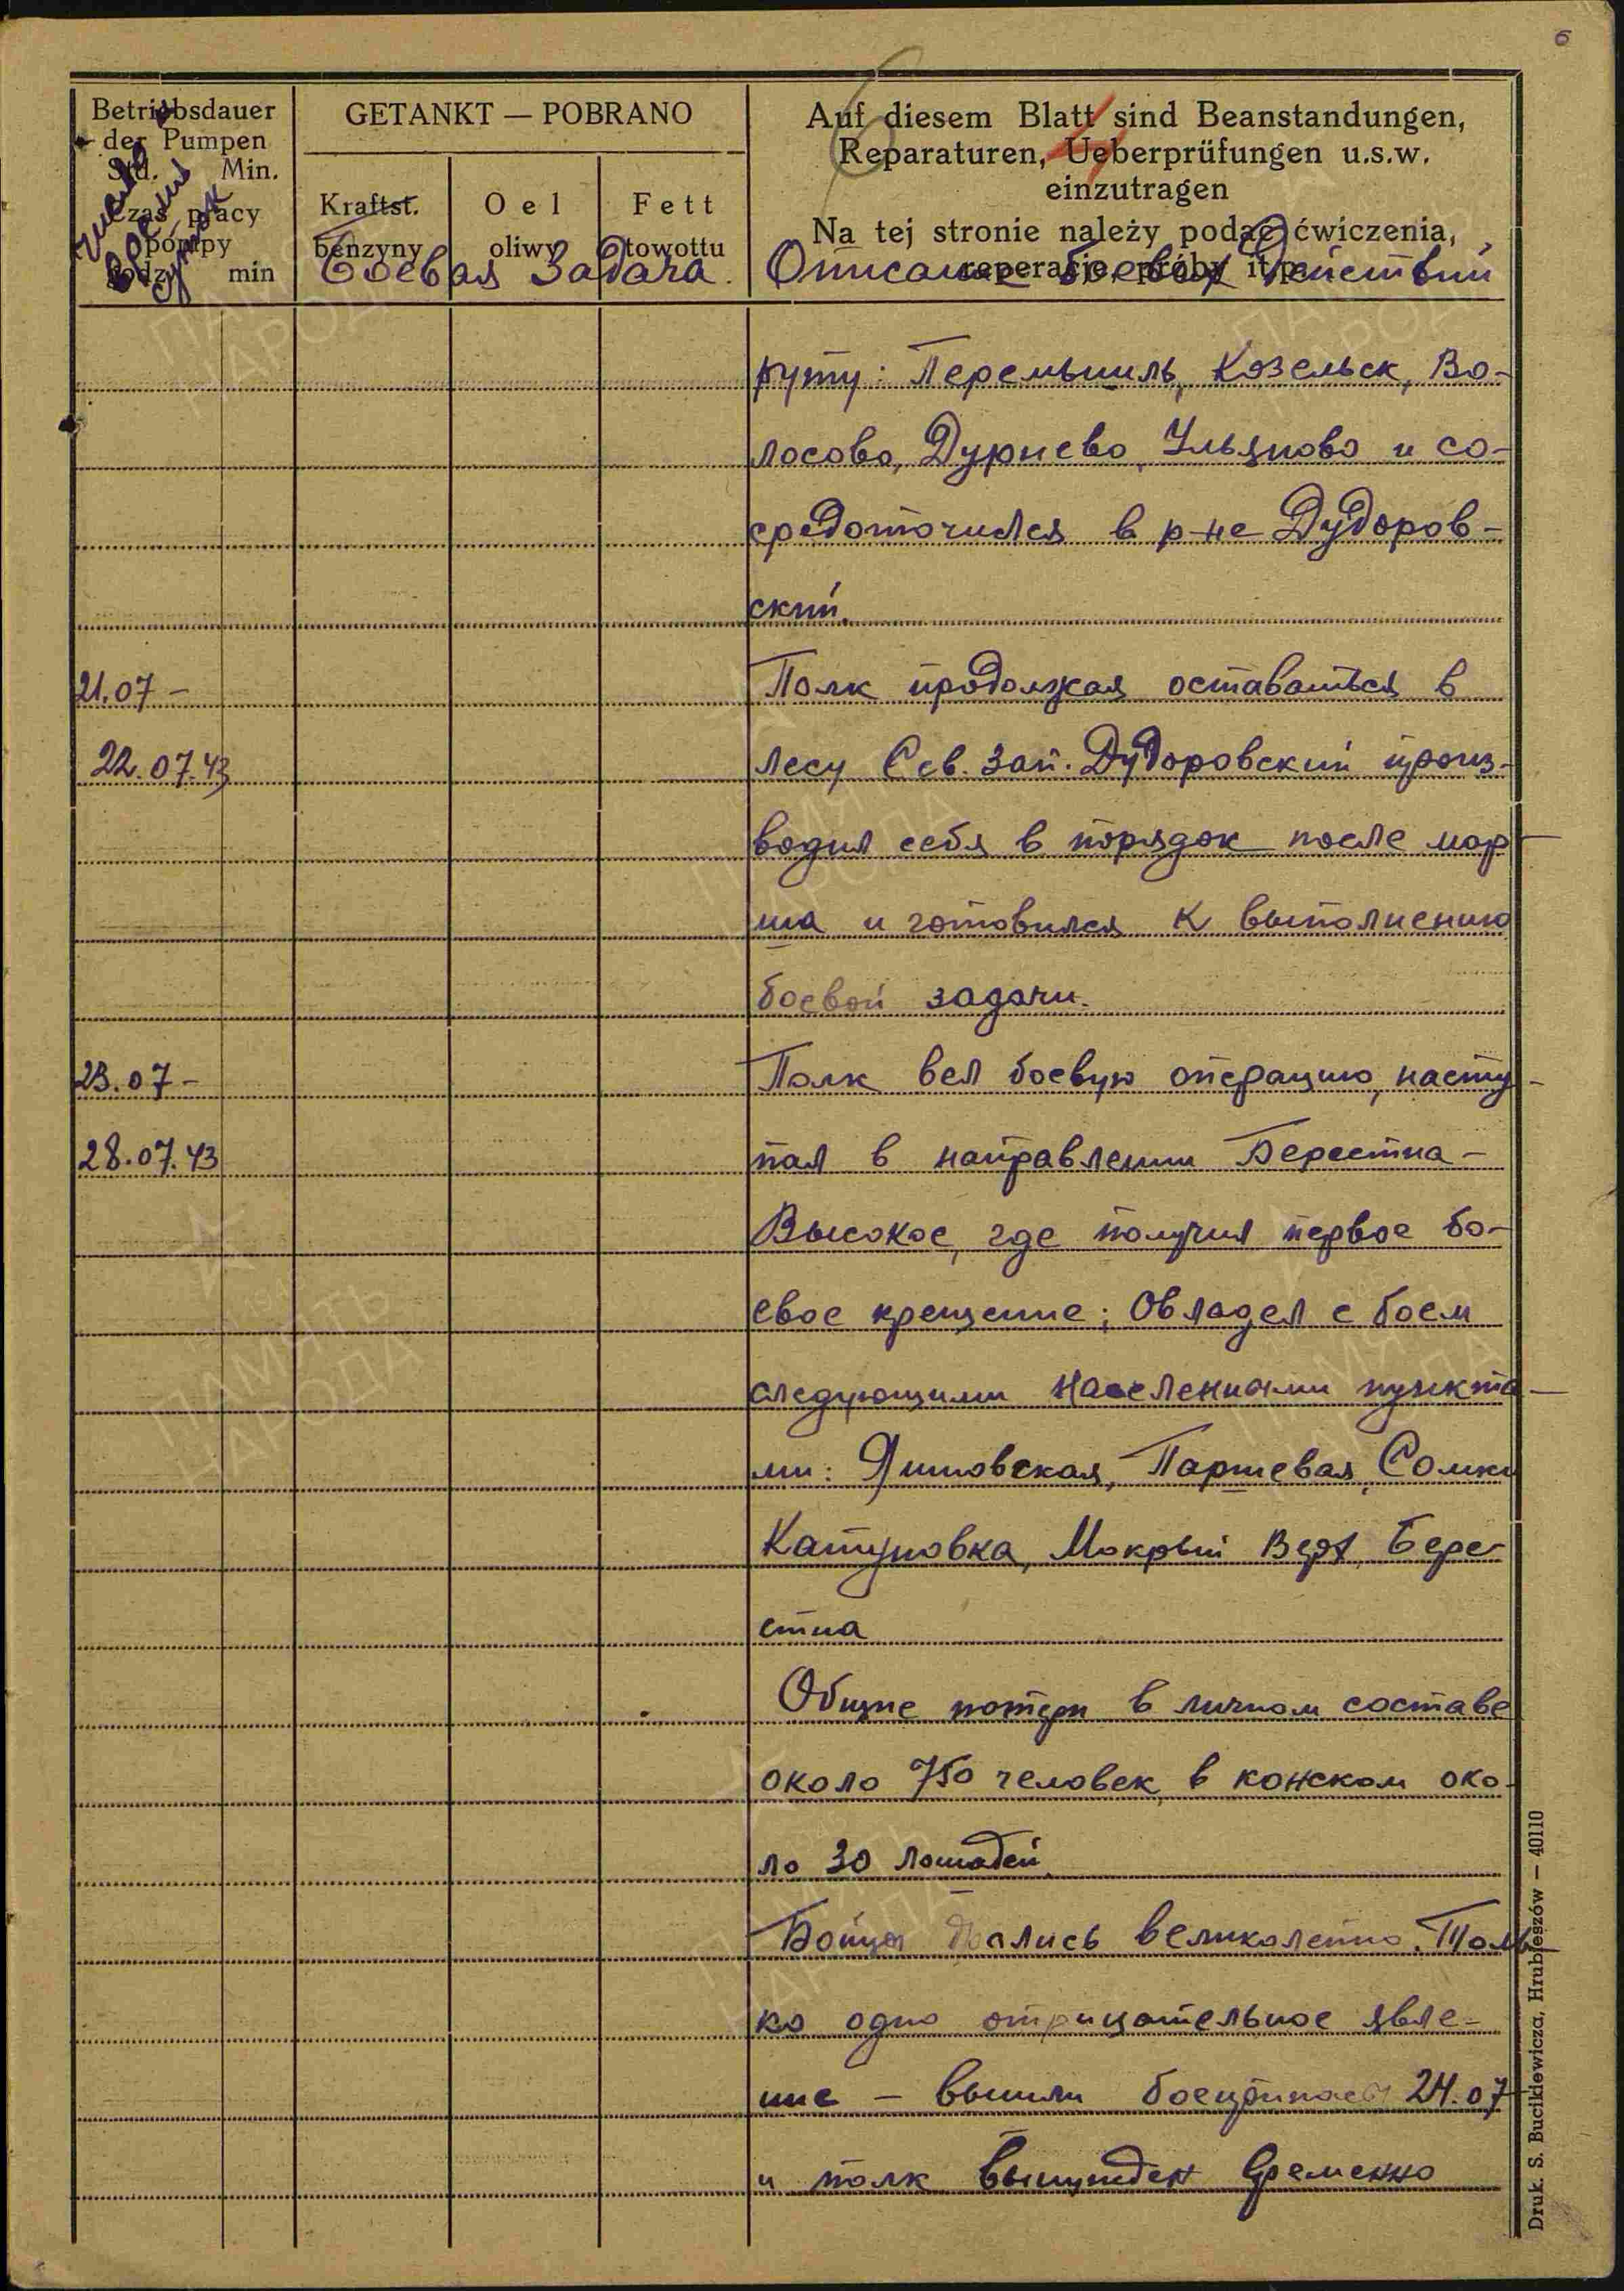 6
Betriebsdauer
der Pumpen
Std. Min.
Czas pracy
pompy
godz. min
число
время
суток
GETANKT — POBRANO
Kraftst.
benzyny
Oel
oliwy
Fett
towottu
Боевая Задача.
Auf diesem Blatt sind Beanstandungen,
Reparaturen, Ueberprüfungen u.s.w.
einzutragen
Na tej stronie należy podać ćwiczenia,
reperacje, próby it.p.
Описание боевых действий
руту: Перемышиль, Козельск, Во-
лосово, Дурнево, Ульяново и со-
средоточился в р-не Дудоров-
ский.
21.07 – Полк продолжая оставаться в
22.07.43 лесу Сев. Зап. Дудоровский произ-
водил себя в порядок после мар-
ша и готовился к выполнению
боевой задачи.
23.07 – Полк вел боевую операцию, насту-
28.07.43 пал в направлении Берестна –
Высокое, где получил первое бо-
евое крещение; Овладел с боем
следующими населенными пункта-
ми: Яшовская, Паршевая, Сомки
Катуновка, Мокрый Верх, Бере-
стна
Общие потери в личном составе
около 750 человек, в конском око-
ло 30 лошадей.
Бойцы дрались великолепно. Толь-
ко одно отрицательное явле-
ние – вышли боеприпасы 24.07
и полк вынужден временно
Druk. S. Bucikiewicza, Hrubieszów — 40110
ПАМЯТЬ
НАРОДА